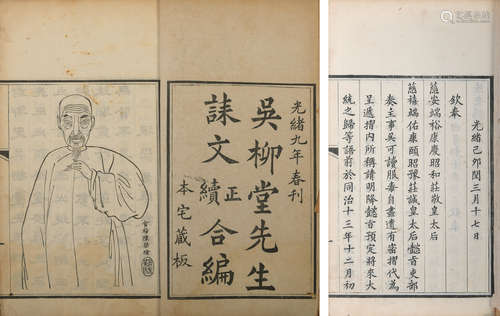 光緒九年春刊
吳柳堂先生
誄文正續合編
本宅藏板
光緒己卯閏三月十七日
欽奉
慈安端裕康慶昭和莊敬皇太后
慈禧端佑康頤昭豫莊誠皇太后懿旨吏部
奏主事吳可讀服毒自盡遺有密摺代為
呈遞摺內所稱請明降懿旨預定將來大
統之歸等語前於同治十三年十二月初